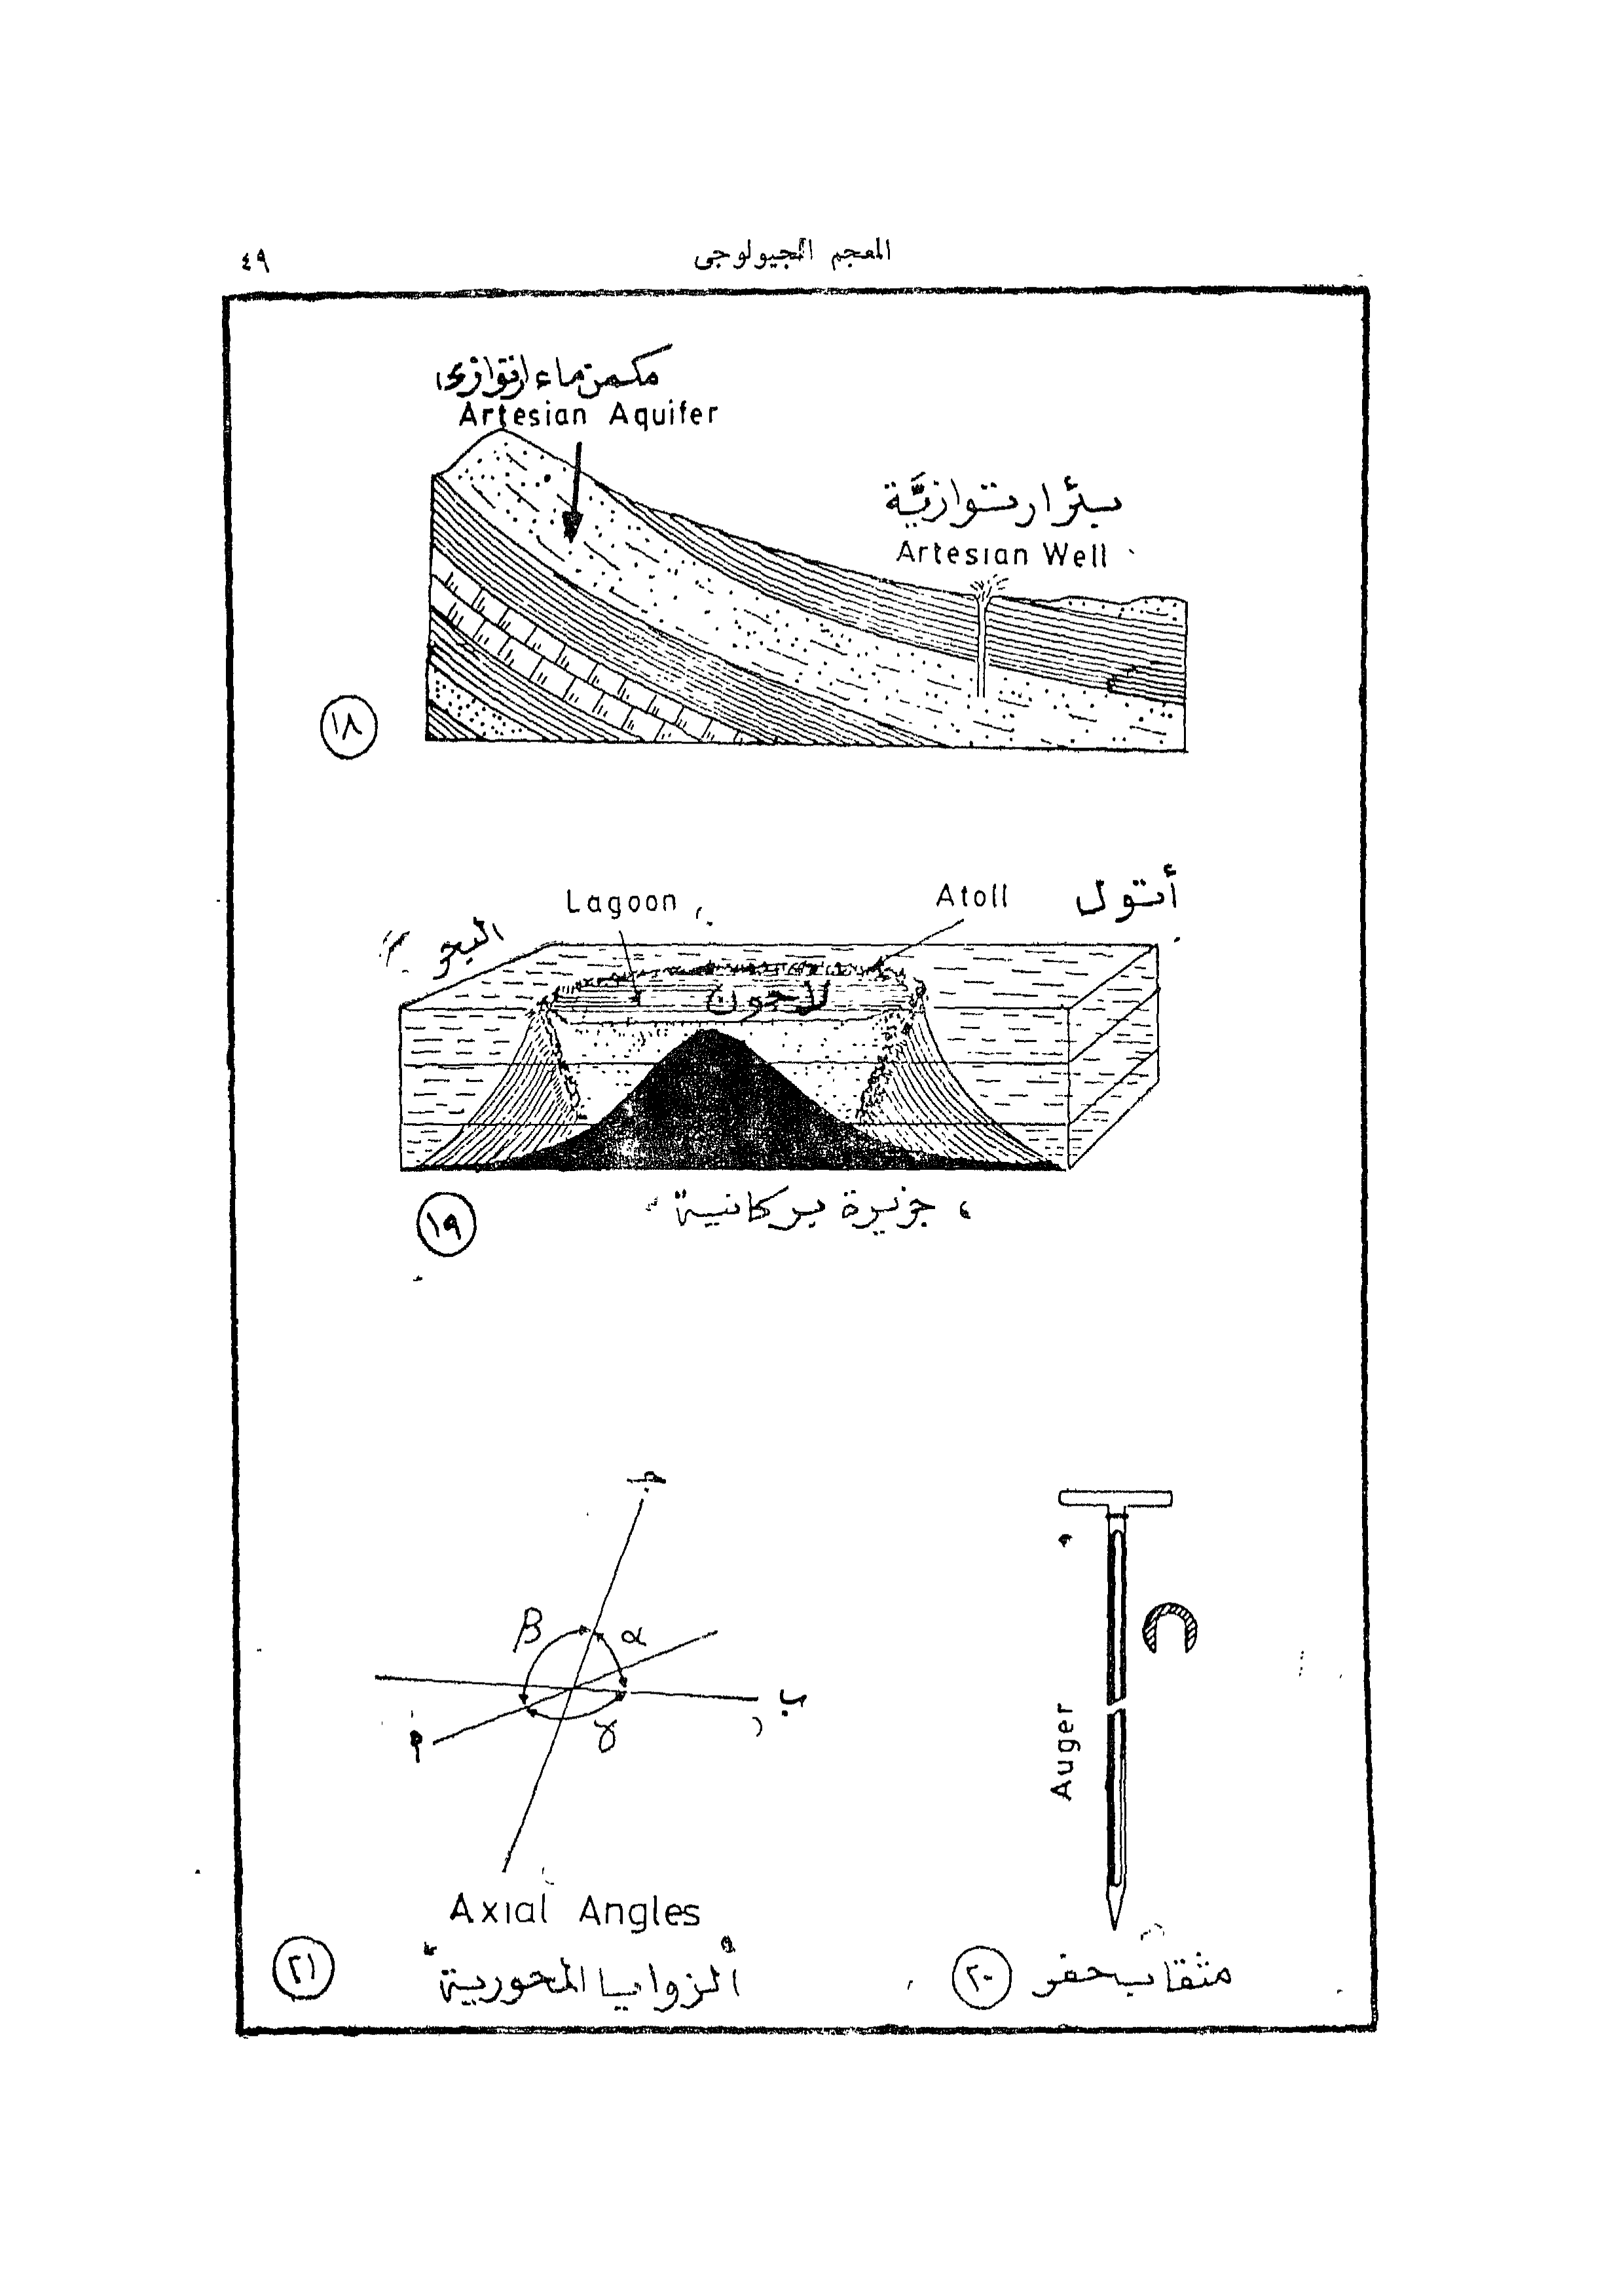 المعجم الجيولوجى
٤٩
مكمن ماء ارتوازى
Artesian Aquifer
بئر ارتوازيَّة
Artesian Well
١٨
أتول
Atoll
Lagoon
البحر
لاجون
جزيرة بركانية
١٩
جـ
β
α
ب
أ
γ
Auger
Axial Angles
الزوايا المحورية
٢١
مثقاب حفر
٢٠